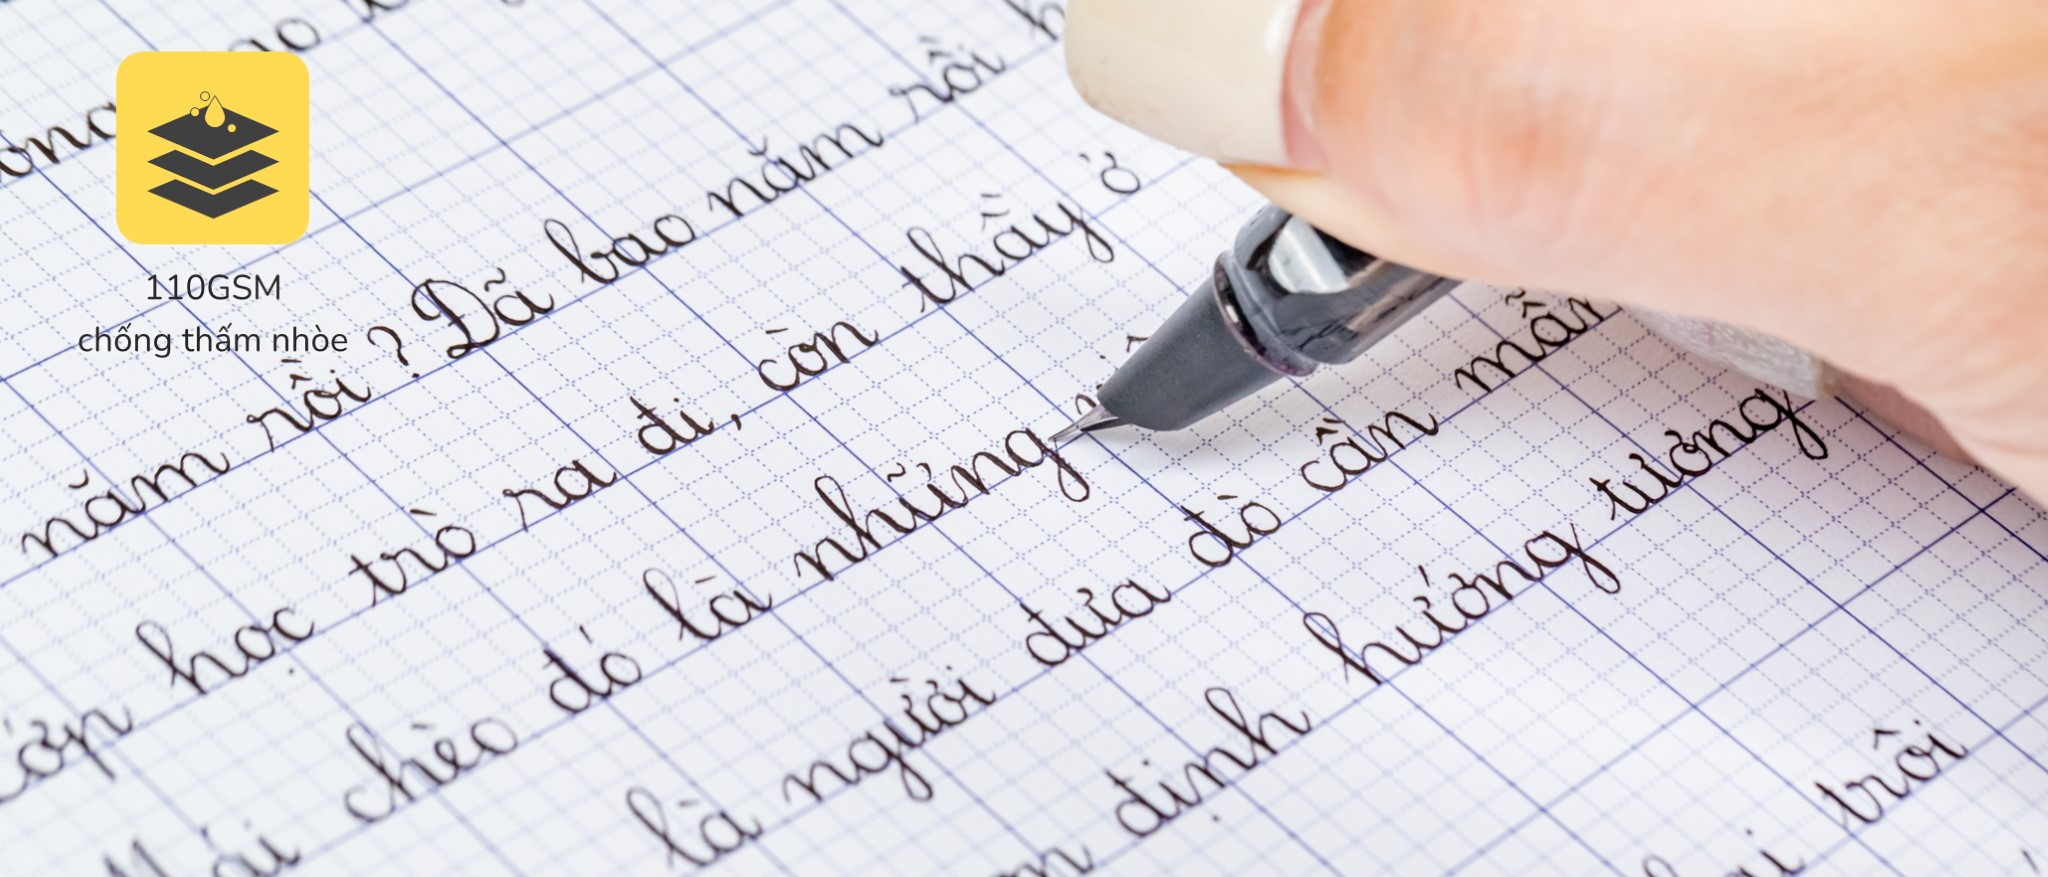 110GSM
chống thấm nhòe
năm rồi ? Đã bao năm rồi
học trò ra đi, còn thầy ở
Mái chèo đó là những
là người đưa đò cần mẫn
định hướng tương
trôi